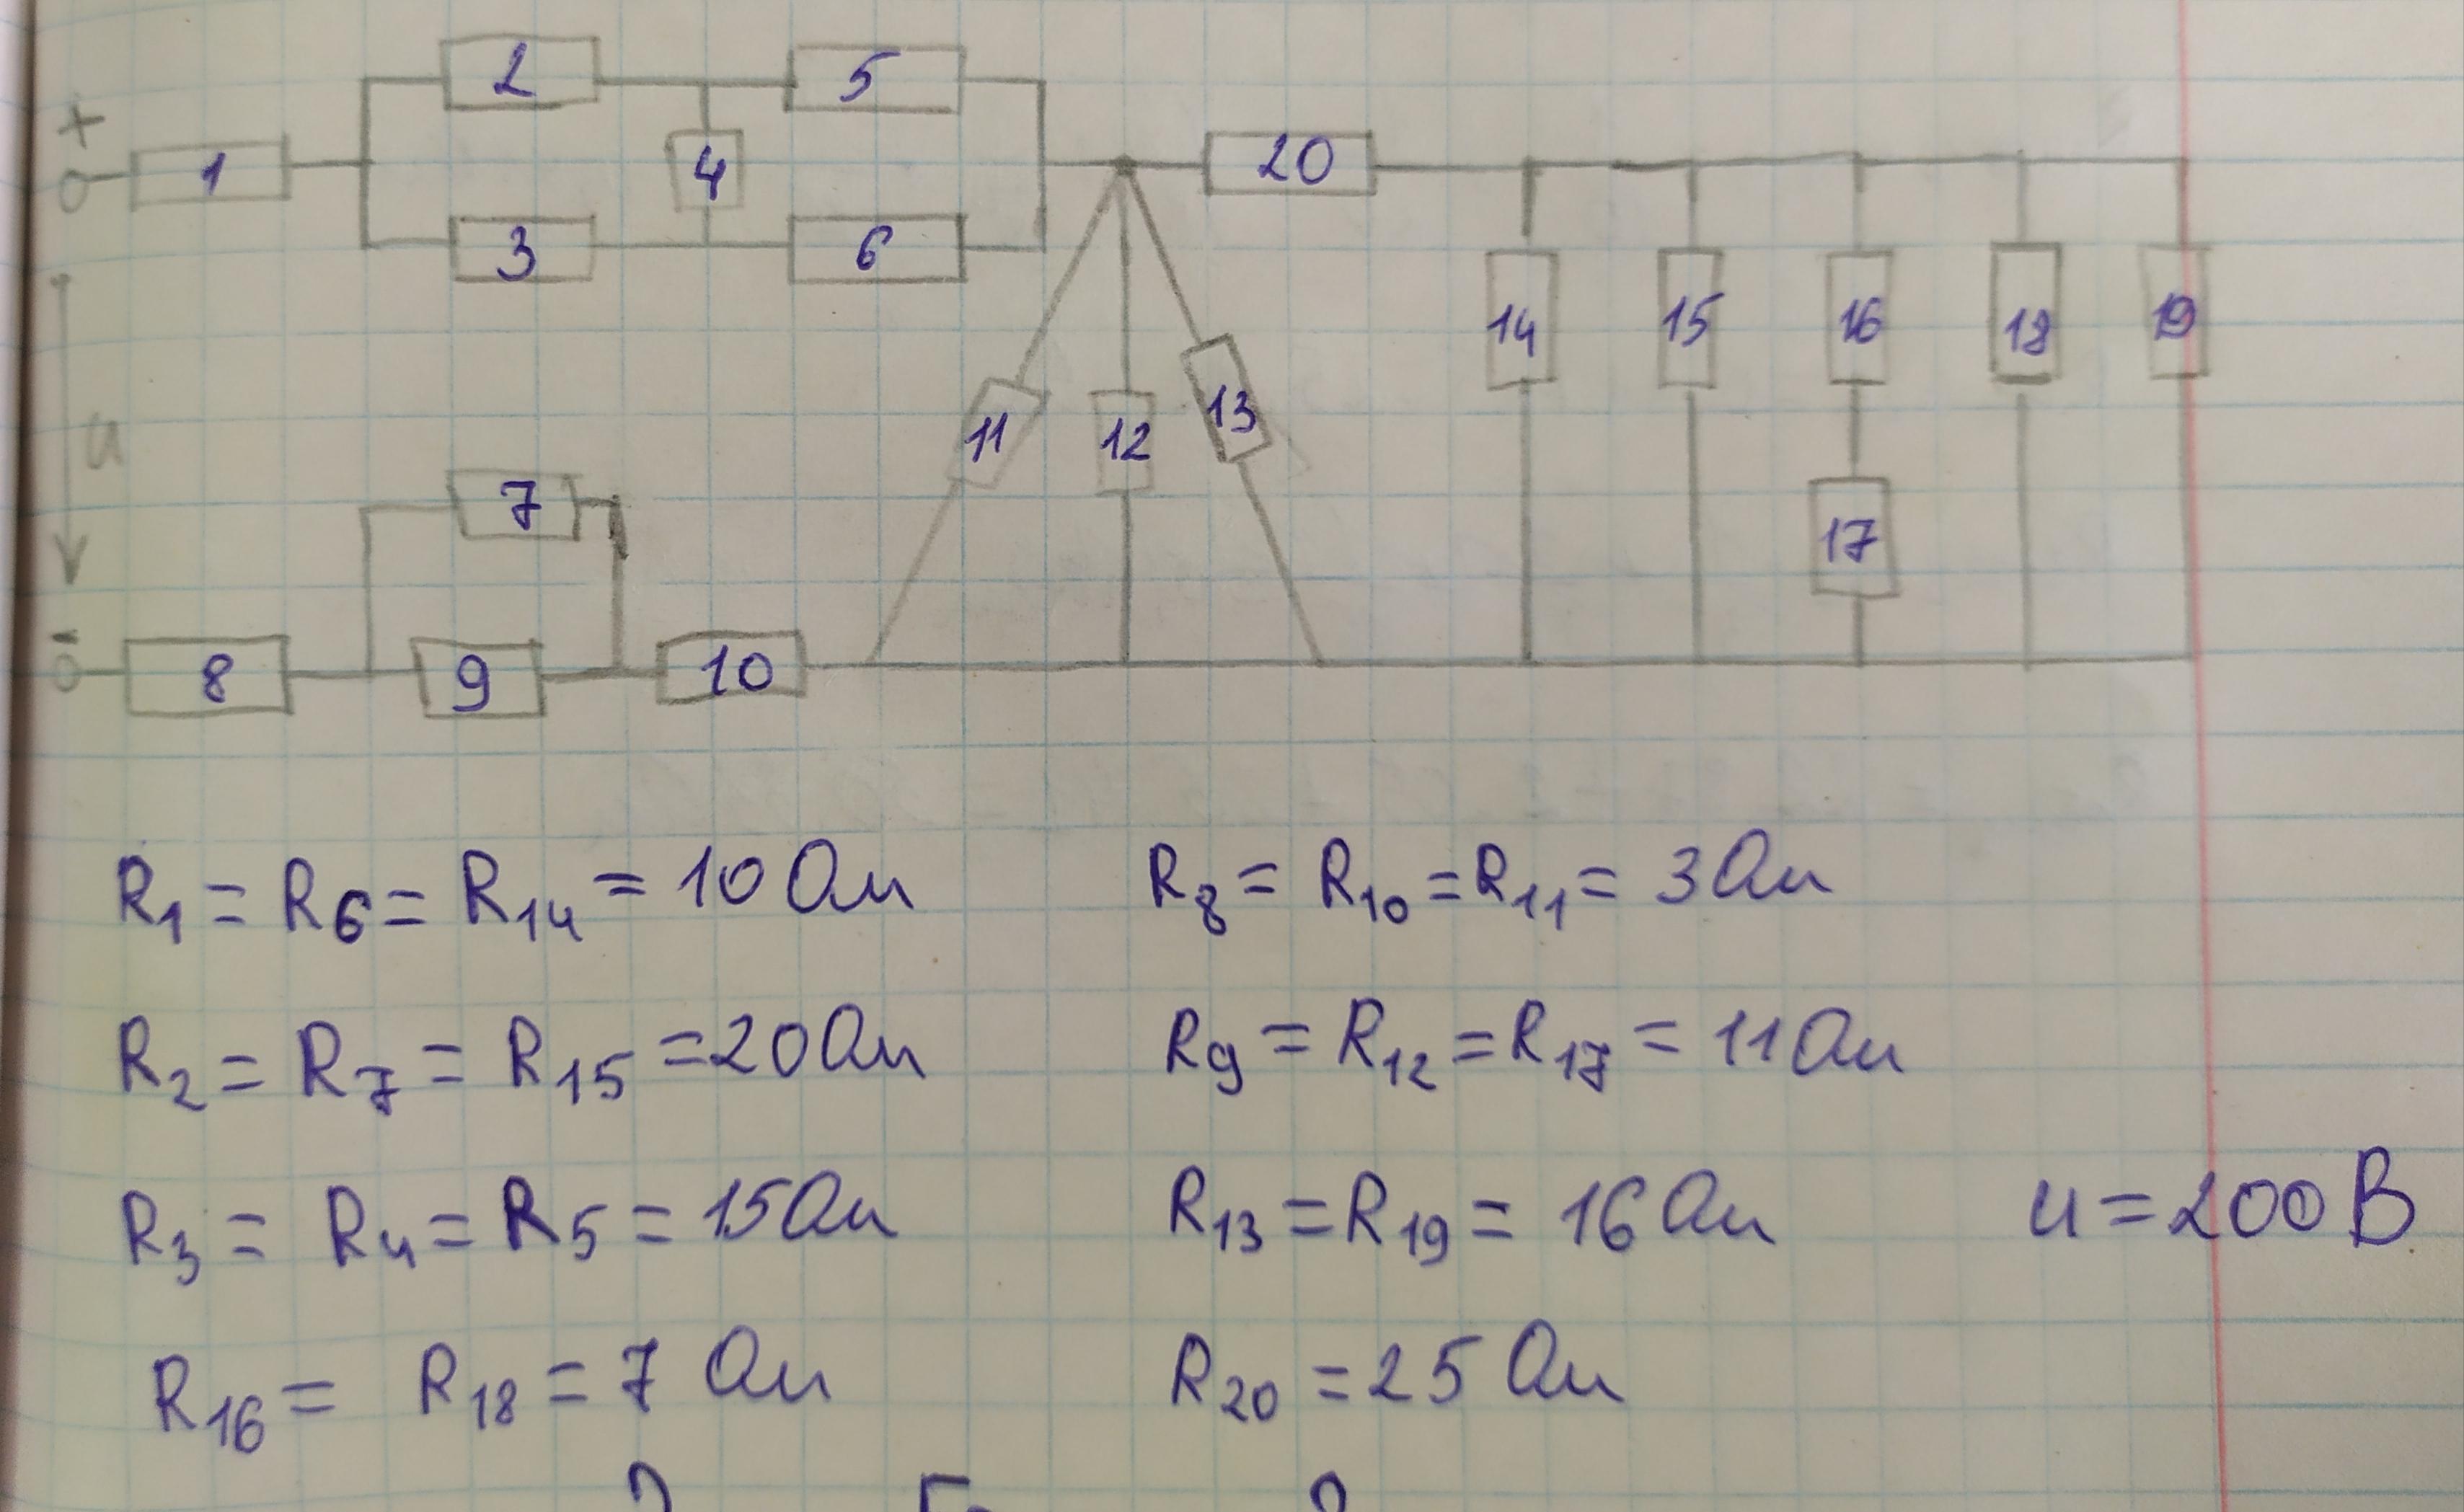 2 5
+ 1 4 20
3 6
14 15 16 18 19
11 12 13
U
7 17
- 8 9 10
R1 = R6 = R14 = 10 Ом
R8 = R10 = R11 = 3 Ом
R2 = R7 = R15 = 20 Ом
R9 = R12 = R17 = 11 Ом
R3 = R4 = R5 = 15 Ом
R13 = R19 = 16 Ом
U = 200 В
R16 = R18 = 7 Ом
R20 = 25 Ом